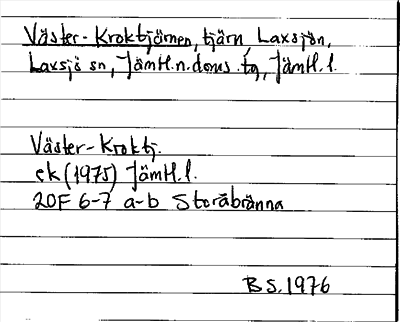 Väster-Kroktjärnen, tjärn, Laxsjön,
Laxsjö sn, Jämtl.n.doms.tg, Jämtl.l.
Väster-Kroktj.
ek (1975) Jämtl.l.
20F 6-7 a-b Storåbränna
BS.1976